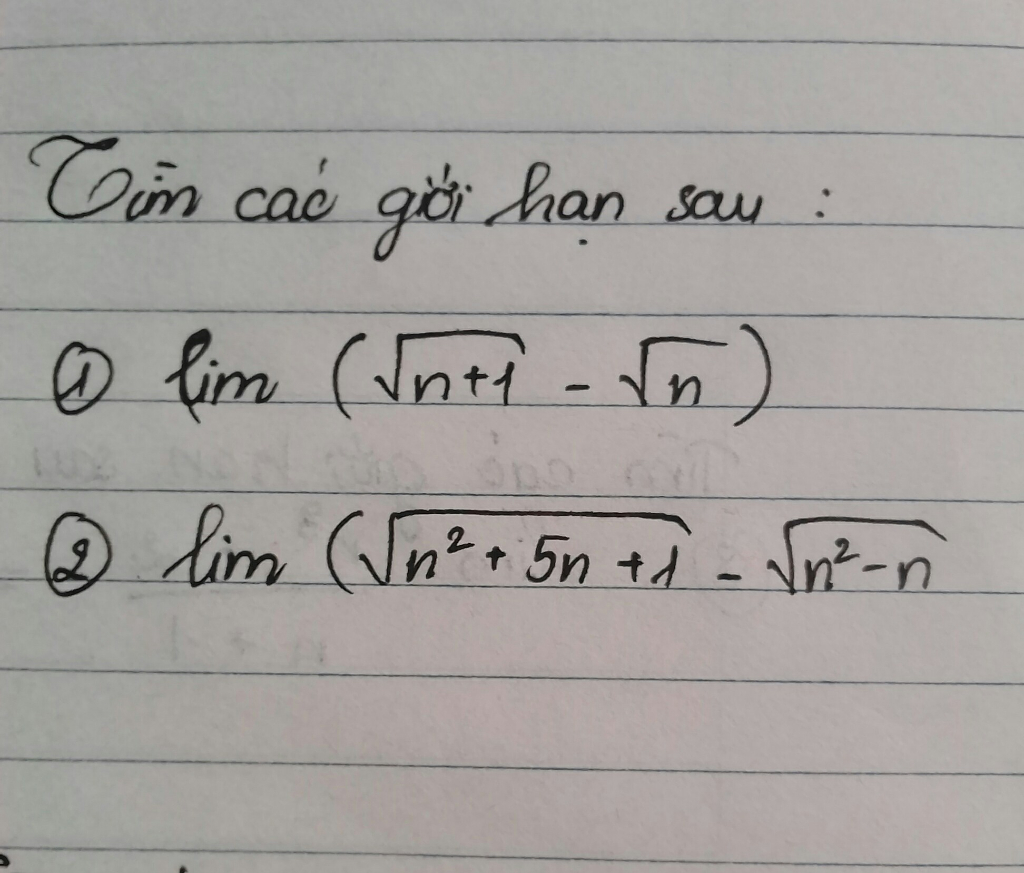 Tìm các giới hạn sau :
① lim (√n+1 - √n)
② lim (√n² + 5n + 1 - √n² - n